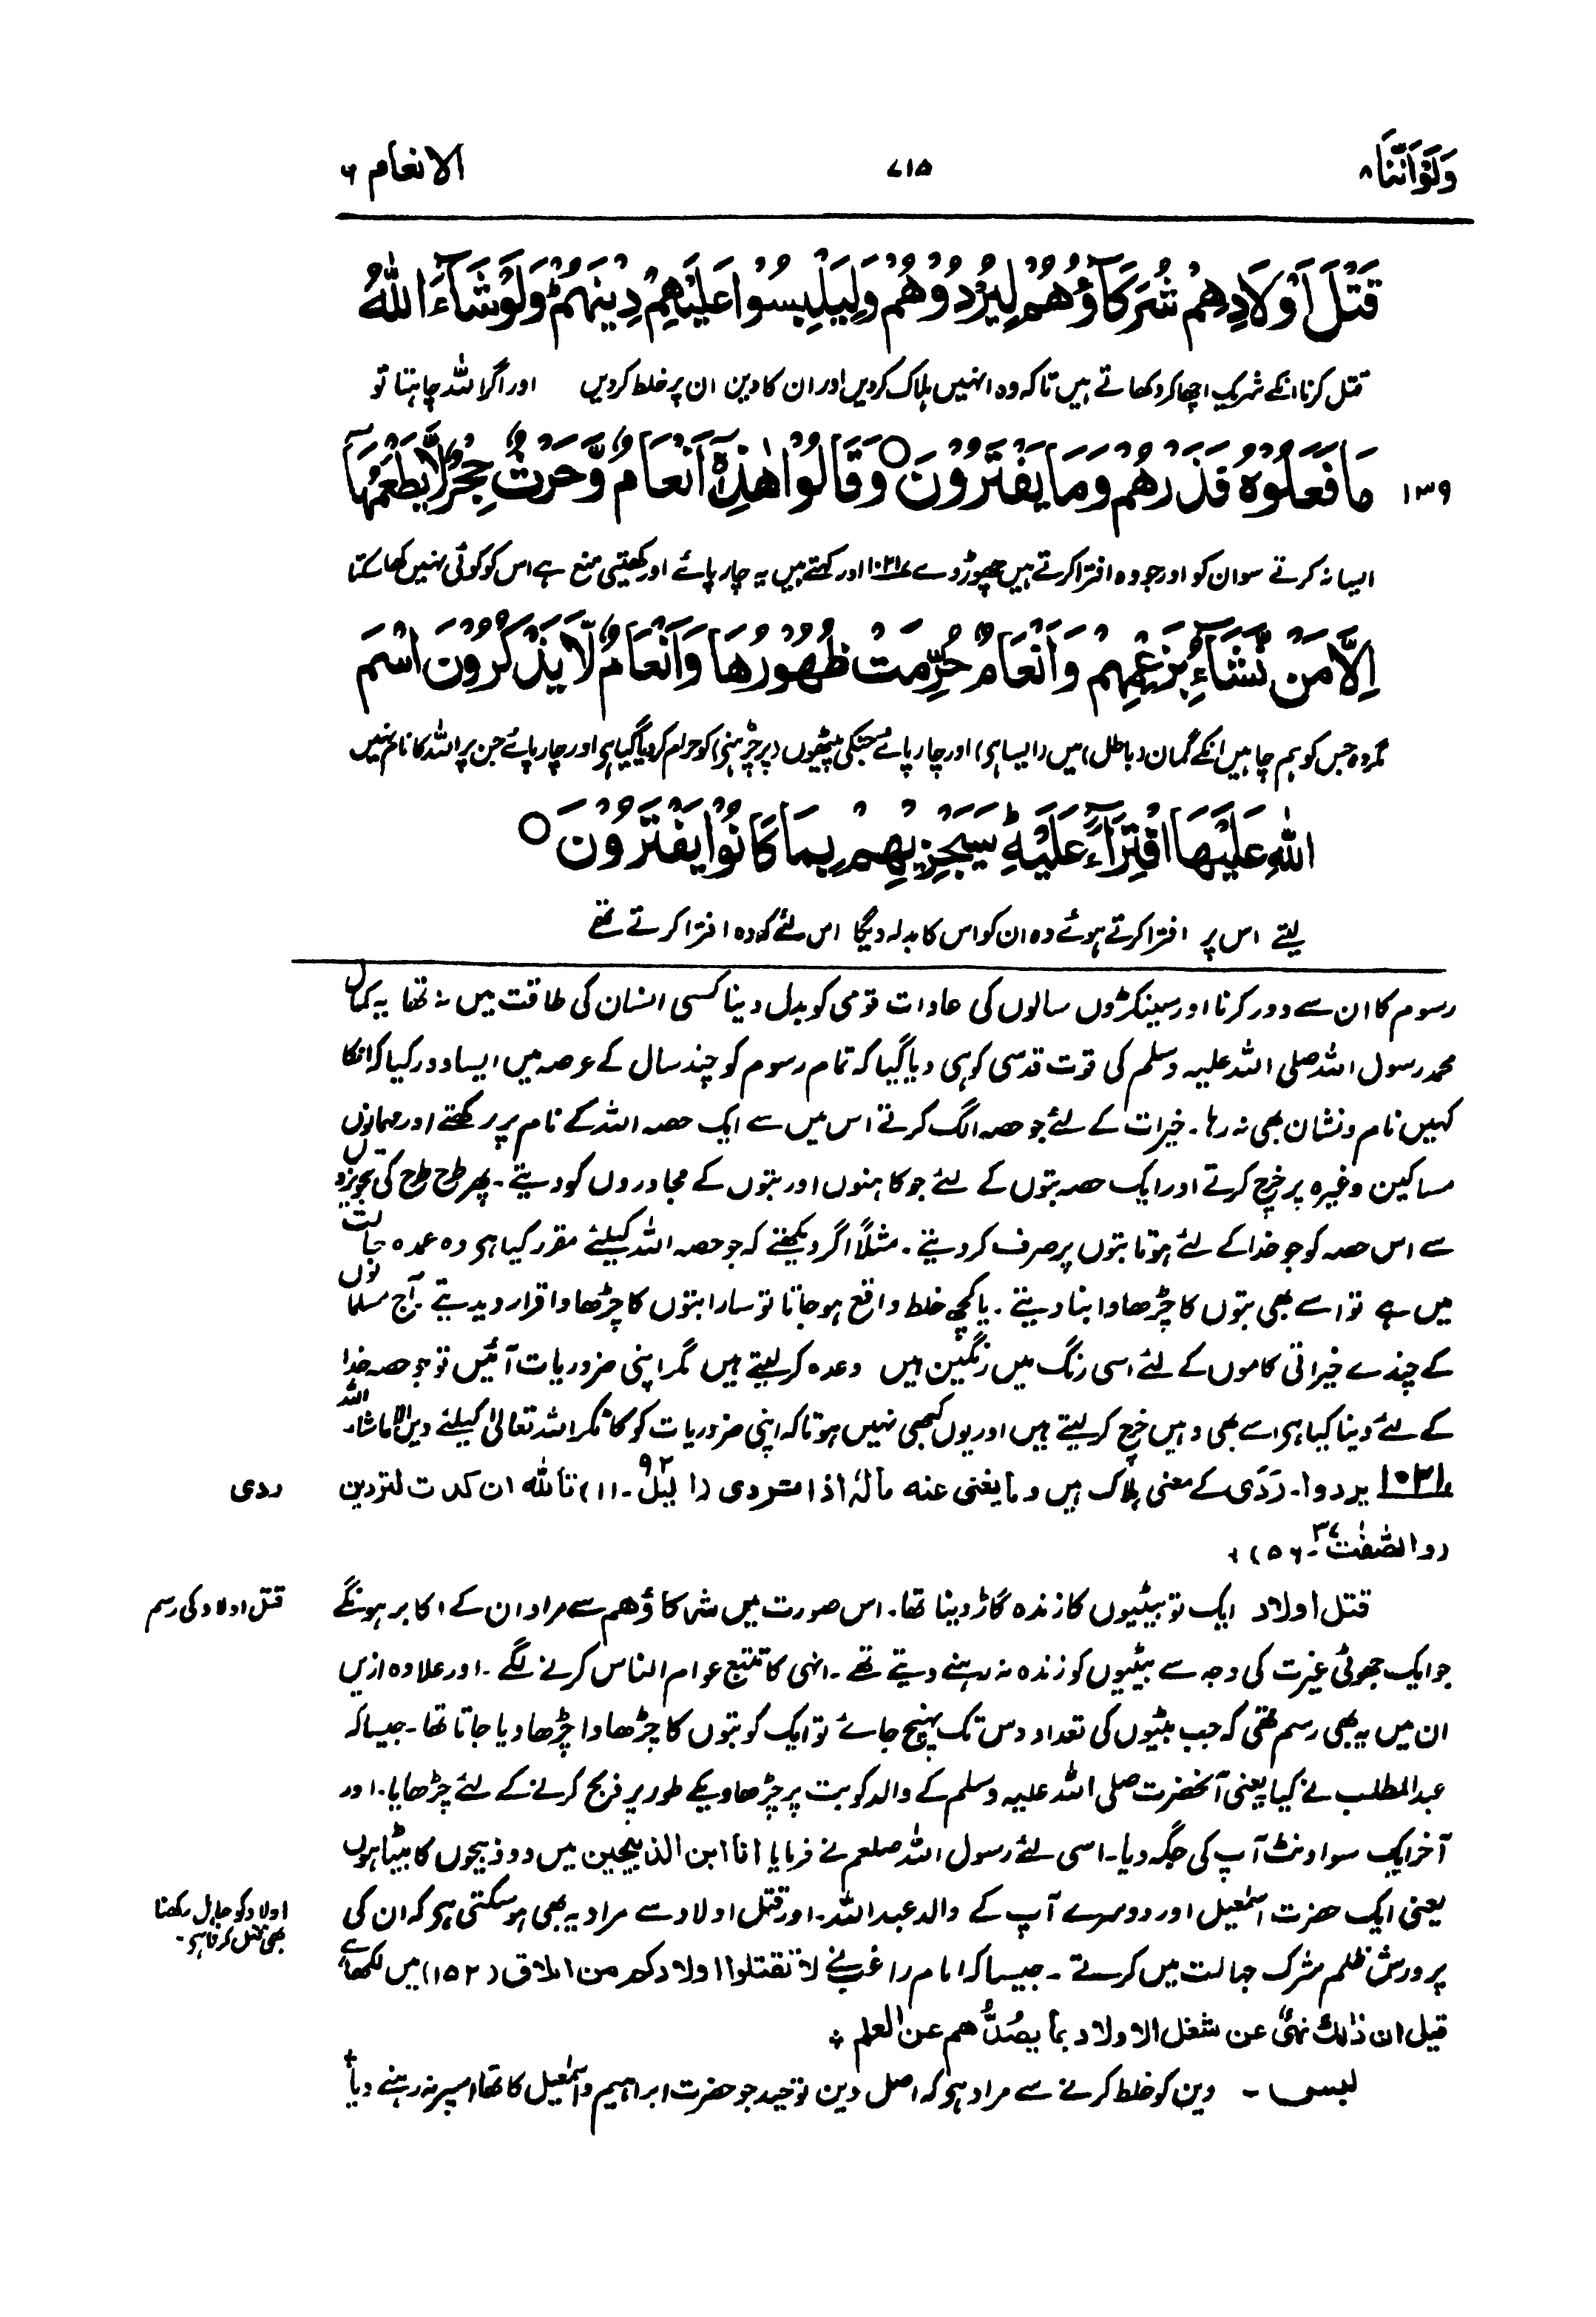 وَلَوْاَنَّنَا ۸
۷۱۵
الانعام ۶
قَتْلَ اَوْلَادِهِمْ شُرَكَآؤُهُمْ لِيُرْدُوْهُمْ وَلِيَلْبِسُوْا عَلَيْهِمْ دِيْنَهُمْ ؕ وَلَوْ شَآءَ اللّٰهُ
قتل کرنا انکے شریک اچھا کر دکھاتے ہیں تاکہ وہ انہیں ہلاک کردیں اور ان کا دین ان پر خلط کردیں اور اگر اللہ چاہتا تو
۱۳۹ مَا فَعَلُوْهُ فَذَرْهُمْ وَمَا يَفْتَرُوْنَ ○ وَقَالُوْا هٰذِهٖٓ اَنْعَامٌ وَّحَرْثٌ حِجْرٌ لَّا يَطْعَمُهَآ
ایسا نہ کرتے سوان کو اور جو وہ افترا کرتے ہیں چھوڑ دے ۱۰۲۱ اور کہتے ہیں یہ چارپائے اور کھیتی منع ہے اس کو کوئی نہیں کھا سکتا
اِلَّا مَنْ نَّشَآءُ بِزَعْمِهِمْ وَاَنْعَامٌ حُرِّمَتْ ظُهُوْرُهَا وَاَنْعَامٌ لَّا يَذْكُرُوْنَ اسْمَ
مگر وہ جس کو ہم چاہیں انکے گمان (باطل) میں (ایسا ہی) اور چارپائے جنکی پیٹھیوں (پر چڑہنے) کو حرام کر دیا گیا ہے اور چارپائے جن پر اللہ کا نام نہیں
اللّٰهِ عَلَيْهَا افْتِرَآءً عَلَيْهِ ؕ سَيَجْزِيْهِمْ بِمَا كَانُوْا يَفْتَرُوْنَ ○
لیتے اس پر افترا کرتے ہوئے وہ ان کو اس کا بدلہ دیگا اس لئے کہ وہ افترا کرتے تھے
رسوم کا ان سے دور کرنا اور سینکڑوں سالوں کی عادات قومی کو بدل دینا کسی انسان کی طاقت میں نہ تھا یہ کمال
محمد رسول اللہ صلی اللہ علیہ وسلم کی قوت قدسی کو ہی دیا گیا کہ تمام رسوم کو چند سال کے عرصہ میں ایسا دور کیا کہ انکا
کہیں نام ونشان بھی نہ رہا۔ خیرات کے لئے جو حصہ الگ کرتے اس میں سے ایک حصہ اللہ کے نام پر رکھتے اور مہمانوں
مساکین وغیرہ پر خرچ کرتے اور ایک حصہ بتوں کے لئے جو کاہنوں اور بتوں کے مجاوروں کو دیتے۔ پھر طرح طرح کی تجویزوں
سے اس حصہ کو جو خدا کے لئے ہوتا بتوں پر صرف کردیتے۔ مثلاً اگر دیکھتے کہ جو حصہ اللہ کیلئے مقرر کیا ہی وہ عمدہ حالت
میں ہے تو اسے بھی بتوں کا چڑھاوا بنا دیتے۔ یا کچھ خلط واقع ہوجاتا تو سارا بتوں کا چڑھاوا قرار دیدیتے۔ آج مسلمانوں
کے چندے خیراتی کاموں کے لئے اسی رنگ میں رنگین ہیں وعدہ کر لیتے ہیں مگر اپنی ضروریات آئیں تو جو حصہ خدا
کے لئے دینا کیا ہی اسے بھی وہیں خرچ کر لیتے ہیں اور یوں کبھی نہیں ہوتا کہ اپنی ضروریات کو کاٹکر اللہ تعالیٰ کیلئے دیں الاماشاء اللہ
۱۰۲۱ یردوا۔ رَدَی کے معنی ہلاک ہیں وما یغنی عنه ماله اذا تردی (الیل ۹۲۔ ۱۱) تالله ان کدت لتردین
ردی
(والصّٰفّٰت ۳۷۔ ۵۶) ÷
قتل اولاد ایک تو بیٹیوں کا زندہ گاڑ دینا تھا۔ اس صورت میں شرکاؤھم سے مراد ان کے اکابر ہونگے
قتل اولاد کی رسم
جو ایک جھوٹی غیرت کی وجہ سے بیٹیوں کو زندہ نہ رہنے دیتے تھے۔ انہی کا تتبع عوام الناس کرنے لگے۔ اور علاوہ ازیں
ان میں یہ بھی رسم تھی کہ جب بیٹیوں کی تعداد دس تک پہنچ جائے تو ایک کو بتوں کا چڑھاوا چڑھا دیا جاتا تھا۔ جیسا کہ
عبدالمطلب نے کیا یعنی آنحضرت صلی اللہ علیہ وسلم کے والد کو بت پر چڑھاویکے طور پر ذبح کرنے کے لئے چڑھایا۔ اور
آخر ایک سو اونٹ آپ کی جگہ دیا۔ اسی لئے رسول اللہ صلعم نے فرمایا انا ابن الذبیحین میں دو ذبیحوں کا بیٹا ہوں
یعنی ایک حضرت اسمٰعیل اور دوسرے آپ کے والد عبداللہ۔ اور قتل اولاد سے مراد یہ بھی ہو سکتی ہی کہ ان کی
اولاد کو جاہل رکھنا
بھی قتل کرنا ہی۔
پرورش ظلم شرک جہالت میں کرتے۔ جیسا کہ امام راغب نے لا تقتلوا اولادکم من املاق (۱۵۲) میں لکھا ہے
قیل ان ذٰلك نھیٌ عن شغل الاولاد بما یصدُّھم عن العلم ÷
لبس۔ دین کو خلط کرنے سے مراد ہی کہ اصل دین توحید جو حضرت ابراہیم واسمٰعیل کا تھا اسپر نہ رہنے دیا ÷